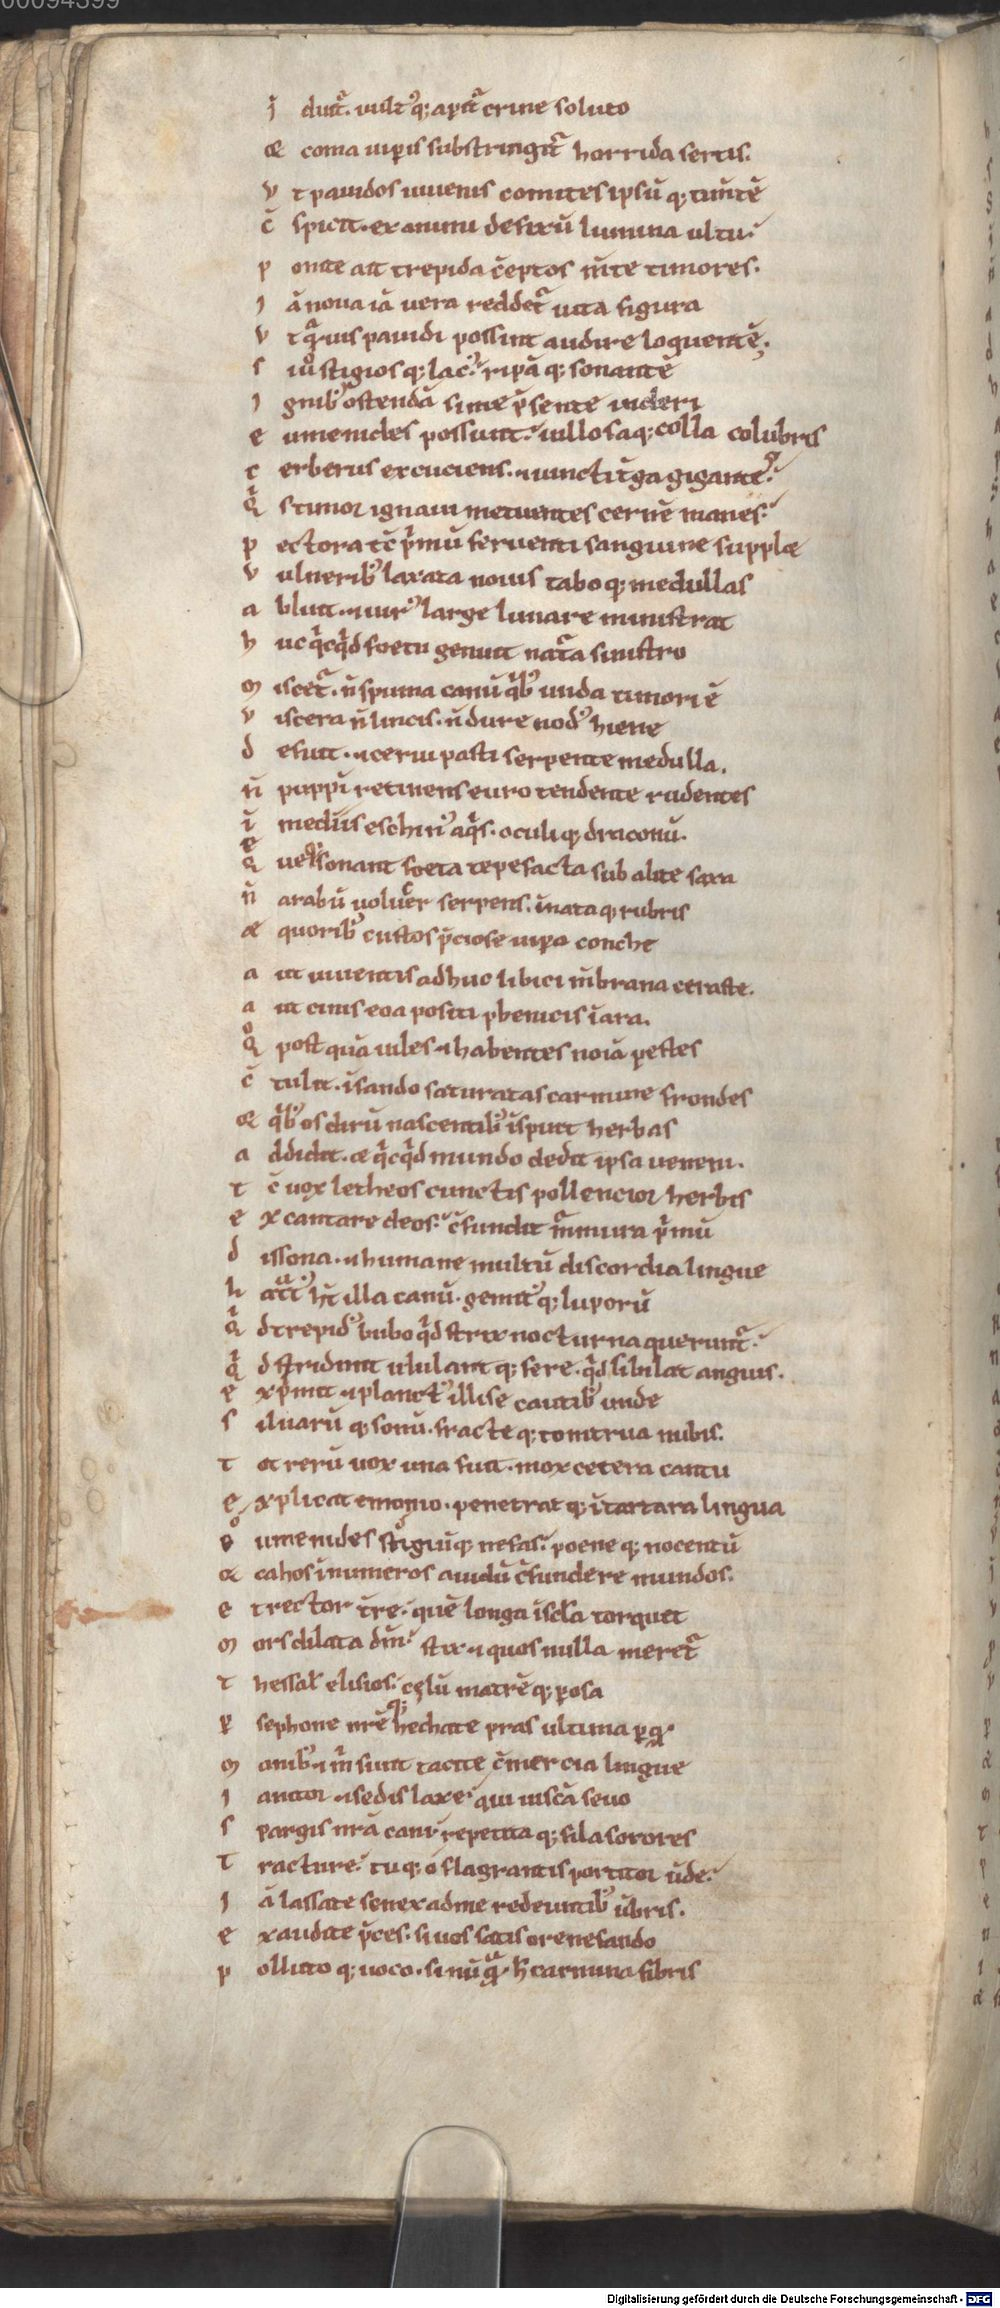 00094399
i duit᷑. uultꝰq; apit᷑ crine soluto
æ coma uiꝑis substringit᷑ horrida sertis.
v t pauidos iuuenis comites ipsū q; tim̄tē
c̄ spicit. exanimi defixū lumina ultu.
p onite ait trepida c̄ceptos m̄te timores.
i ā noua iā uera reddet᷑ uita figura
v t q̃uis pauidi possint audire loquentē.
s iu̾ stigiosq; lacꝰ. ripā q; sonantē
i gnibꝰ ostendā si me p̄sente uideri
e umenides possunt. uillosaq; colla colubris
c erberus excuciens. ⁊ uincti t̄ga gigante.
q̾ s timor ignaui metuentes cernē manes.
p ectora tc̄ p̾mū feruenti sanguine supplæ
v ulneribꝰ laxata nouis tabo q; medullas
a bluit. ⁊ uirꝰ large lunare ministrat
h uc q̾cq̾d foetu genuit nat᷑a sinistro
m iscet᷑. n̄ spuma canū q̾bꝰ unda timori ē
v iscera n̄ lincis. n̄ dure nodꝰ hiene
d efuit. ⁊ cerui pasti serpente medulla.
n̄ puppī retinens euro tendente rudentes
ī mediis eschinꝰ aq̾s. oculiq; draconū.
q̄ ue sonant foeta tepefacta sub alite saxa
n̄ arabū uolucer serpens. īnataq; rubris
æ quoribꝰ custos p̄ciose uiꝑa conche
a ut uiuentis adhuc libici m̄brana ceraste.
a ut cinis eoa positi phenicis ī ara.
q̊ post quā uiles ⁊ habentes noīa pestes
c̄ tulit. īfando saturatas carmine frondes
æ q̾bꝰ os dirū nascentibꝰ īspuit herbas
a ddidit. æ q̾cq̾d mundo dedit ipsa ueneni.
t c̄ uox letheos cunctis pollencior herbis
e xcantare deos. c̄fundit m᷑mura p̾mū
d issona. ⁊ humane multū discordia lingue
h at᷑tꝰ h̄t illa canū. gemitꝰ q; luporū
q̾ d trepidꝰ bubo q̾d strix nocturna querunt᷑.
q̾ d stridunt ululant q; fere. q̾d sibilat anguis.
e xp̾mit ⁊ planctꝰ illise cautibꝰ unde
s iluarū q; sonū. fracte q; tonitrua nubis.
t ot rerū uox una fuit. mox cetera cantu
e xplicat emonio. penetrat q; ī tartara lingua
e umenides stigiūq; nefas. poene q; nocentū
æ cahos īnumeros auidū c̄fundere mundos.
e t rector t̄re. quē longa ī scl̄a torquet
m ors dilata dm̄. stix ⁊ quos nulla meret᷑
t hessal̄ elisios. cęlū matrē q; ꝑosa
ꝑ sephone nr̄e q; hechate pras ultima ꝑ q̄
m anibꝰ ⁊ m̾ sunt tacite c̄mercia lingue
i anitor ⁊ sedis laxe. qui uiscā seuo
s pargis nr̄a cani. repetita q; fila sorores
t racture. tu q; o flagrantis portitor ūde.
i ā lassate senex ad me redeuntibꝰ ūbris.
e xaudite p̄ces. si uos satis ore nefando
p olluto q; uoco. si nūq̃ h̄ carmina fibris
Digitalisierung gefördert durch die Deutsche Forschungsgemeinschaft - DFG